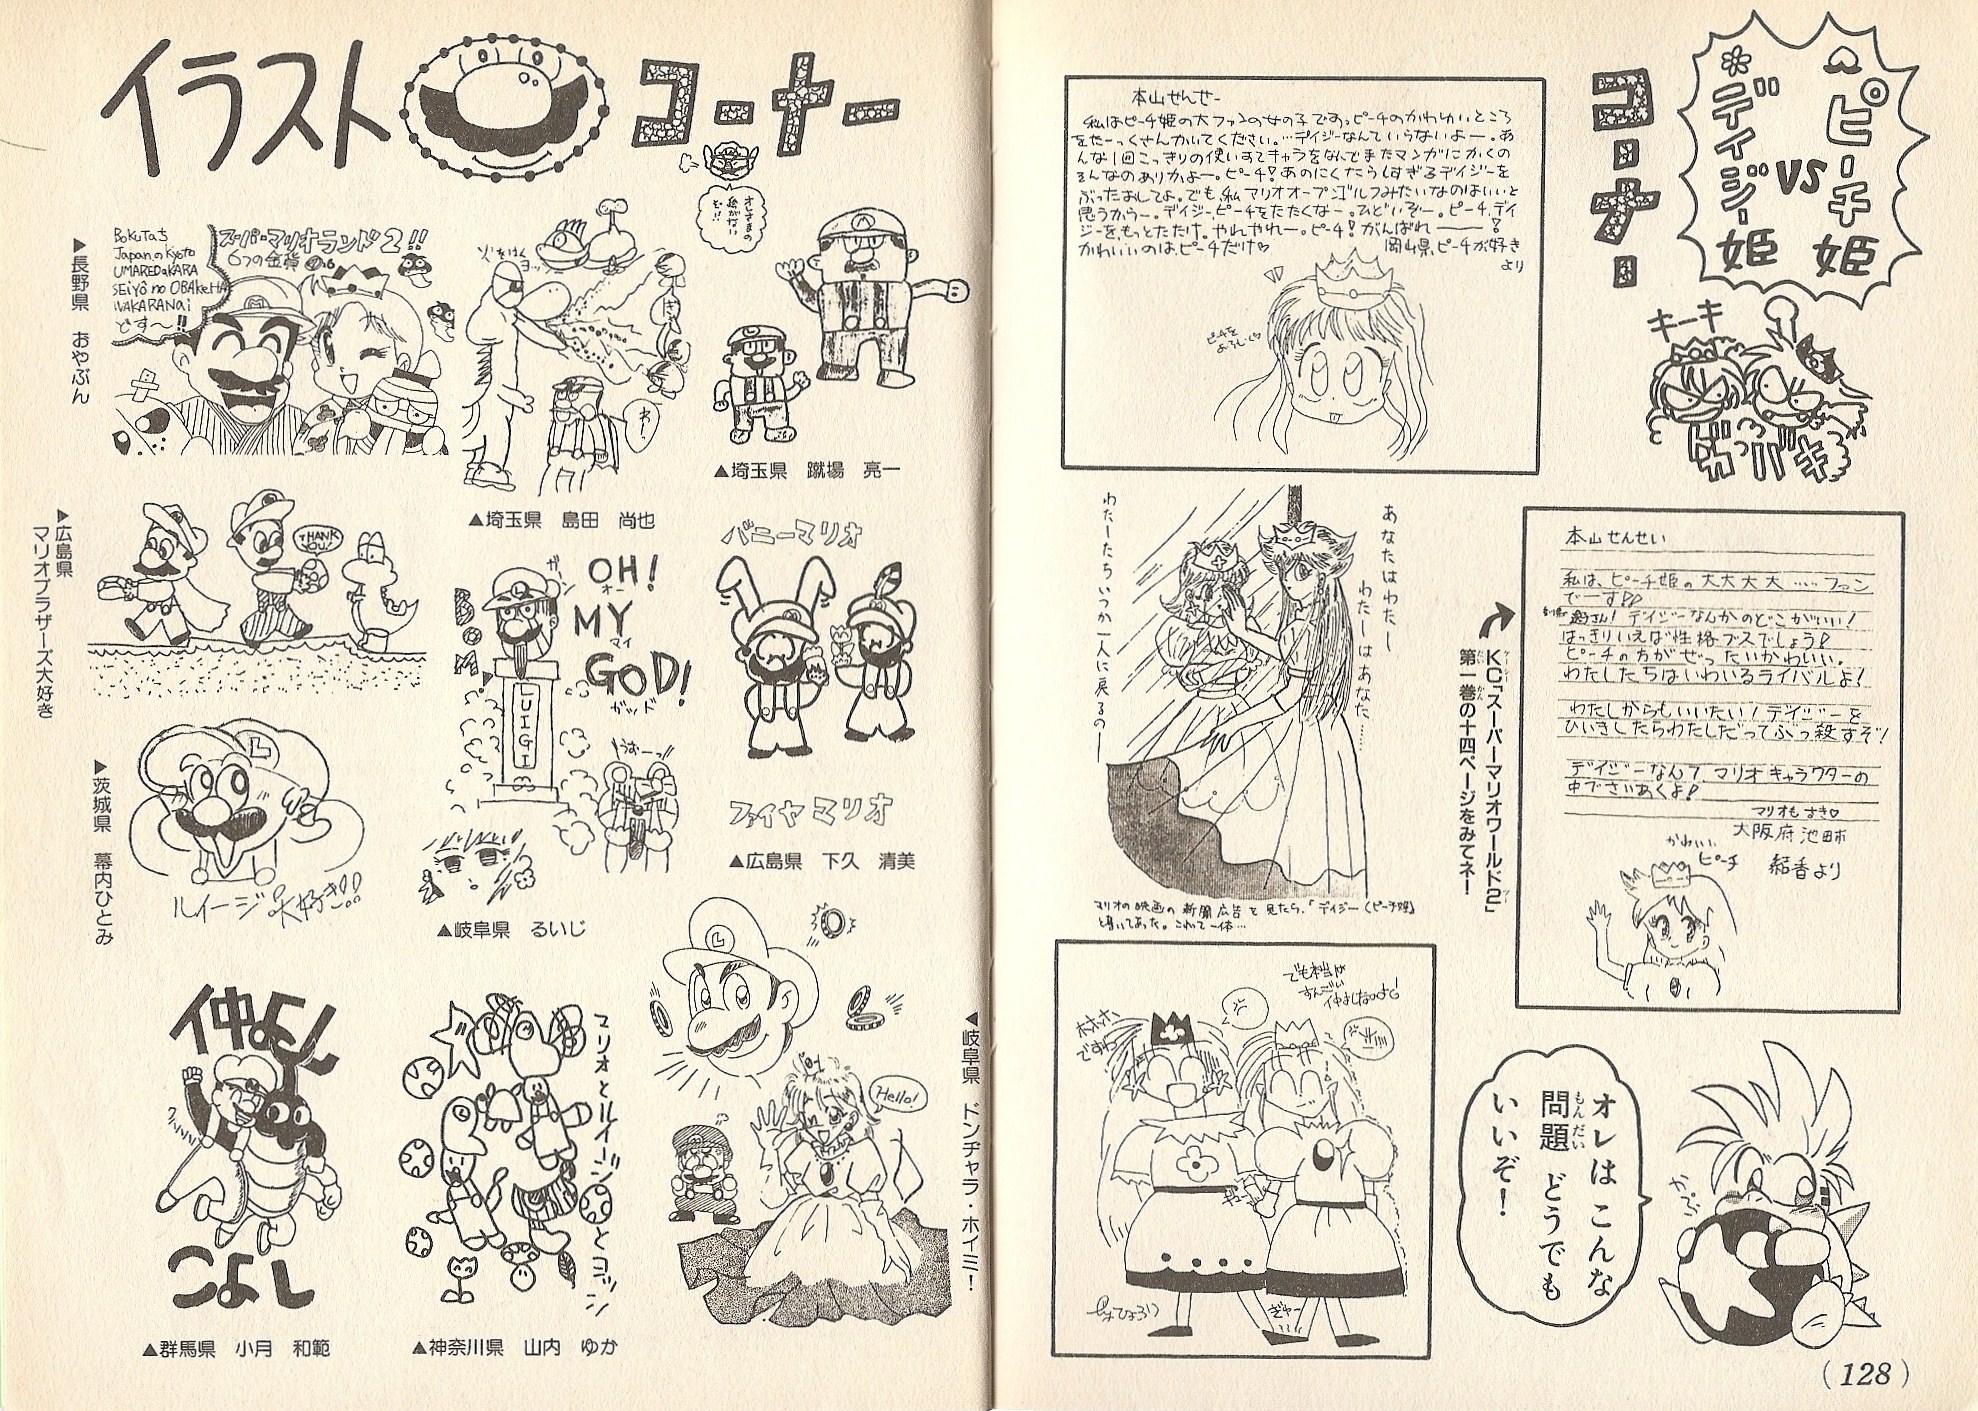 ピーチ姫
VS
デイジー姫
コーナー
キーキ
ドカッバキ
本山せんせー
私はピーチ姫の大ファンの女の子です。ピーチのかわゆいところ
をたーっくさんかいてください。…デイジーなんていらないよー。あ
んな1回こっきりの使いすてキャラをなんでまたマンガにかくの
そんなのありかよー。ピーチ!あのにくたらしすぎるデイジーを
ぶったおしてよ。でも、私マリオオープンゴルフみたいなのはいいと
思うからー。デイジー、ピーチをたたくなー。ひどいぞー。ピーチ、デイ
ジーを、もっとたたけ。やれやれー。ピーチ!がんばれ――!
かわいいのは、ピーチだけ♡ 岡山県、ピーチが好き
より
ピーチを
よろしく♡
本山せんせい
私は、ピーチ姫の大大大大……ファン
でーす!!
さん!デイジーなんかのどこがいい!
はっきりいえば性格ブスでしょう!
ピーチの方がぜったいかわいい。
わたしたちはいわいるライバルよ!
わたしからもいいたい!デイジーを
ひいきしたらわたしだってぶっ殺すぞ!
デイジーなんて、マリオキャラクターの
中でさいあくよ!
マリオもすき♡
大阪府池田市
結香より
かわいい
ピーチ
KC「スーパーマリオワールド2」
第一巻の十四ページをみてネ!
あなたはわたし
わたしはあなた……
わたーたちいつか一人に戻るの―
マリオの映画の新聞広告を見たら、「デイジー(ピーチ姫)
と書いてあった。これって一体…
でも本当は
すんごい
仲よしなのよ
ホホホ
ですわ
ぎゃー
オレはこんな
問題どうでも
いいぞ!
もんだい
かぷ
(128)
イラスト
コーナー
オレさまの
絵がない
ぞ!!
BOKUTACHi
Japan no Kyoto
UMAREDaKARA
SEiYô no OBAkeHA
WAKARANAi
どす〜!!
スーパーマリオランド2!!
6つの金貨
▶長野県 おやぶん
▲埼玉県 島田 尚也
▲埼玉県 蹴場 亮一
THANK YOU!
▶広島県
マリオブラザーズ大好き
BOM
OH!
オー
MY
マイ
GOD!
ガッド
ガーン
LUIGI
▲岐阜県 るいじ
バニーマリオ
ファイヤマリオ
▲広島県 下久 清美
L
ルイージ大好き!!
▶茨城県 幕内ひとみ
仲よし
こよし
▲群馬県 小月 和範
マリオとルイージとヨッシー
▲神奈川県 山内 ゆか
L
Hello!
◀岐阜県 ドンヂャラ・ホイミ!